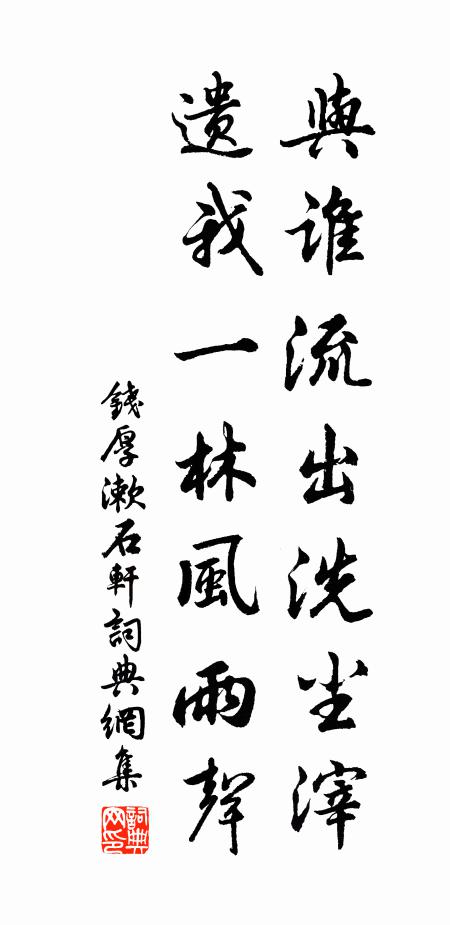 與誰流出洗尘滓
遺我一林風雨聲
錢厚漱石軒詞典網集
詞典网印